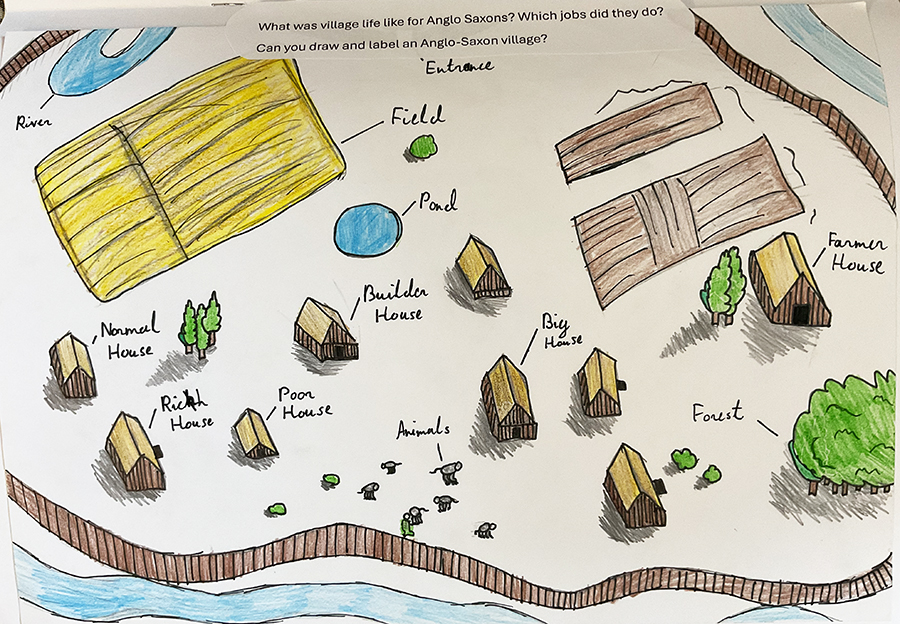 What was village life like for Anglo Saxons? Which jobs did they do?
Can you draw and label an Anglo-Saxon village?
Entrance
River
Field
Pond
Farmer
House
Builder
House
Normal
House
Big
House
Rich
House
Poor
House
Animals
Forest